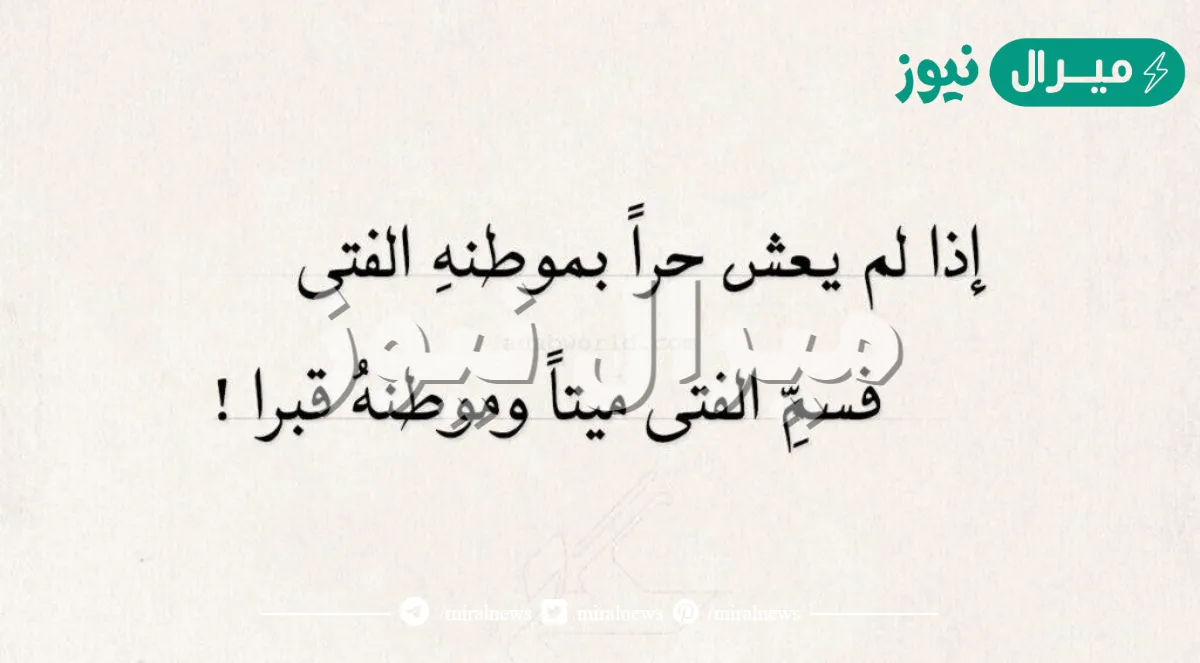 ميرال نيوز
إذا لم يعش حراً بموطنهِ الفتى
ميرال نيوز
فسمِّ الفتى ميتاً وموطنهُ قبرا !
/miralnews miralnews /miralnews